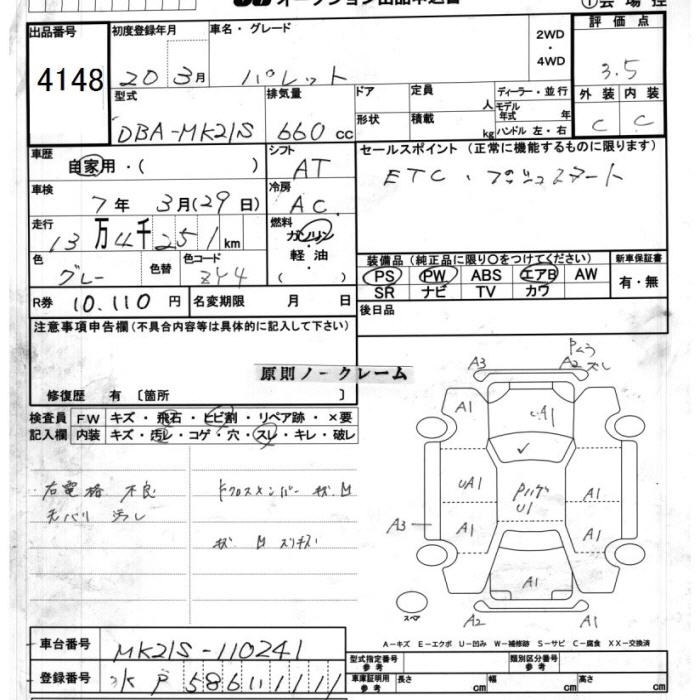 オークション出品申込書
①会場控
出品番号 4148
初度登録年月 20 3月
車名・グレード パレット
2WD・4WD
評価点 3.5
型式 DBA-MK21S
排気量 660 cc
ドア 形状
定員 人
積載 kg
ディーラー・並行
モデル年式 年
ハンドル 左・右
外装 C
内装 C
車歴 自家用・( )
シフト AT
セールスポイント (正常に機能するものに限ります)
ETC・プッシュスタート
車検 7年 3月(29日)
冷房 AC
走行 13万4千251km
燃料 ガソリン・軽油・( )
色 グレー
色替
色コード Z44
装備品 (純正品に限り○をつけてください)
PS PW ABS エアB AW
SR ナビ TV カワ
新車保証書 有・無
R券 10,110 円
名変期限 月 日
後日品
注意事項申告欄 (不具合内容等は具体的に記入して下さい)
原則ノークレーム
修復歴 有 [箇所 ]
検査員記入欄
FW キズ・飛石・ヒビ割・リペア跡・×要
内装 キズ・汚レ・コゲ・穴・スレ・キレ・破レ
不良
汚レ
A3 A2
A1 A1
UA1 A1
U1
A3 A1 A1
A1
スペア
A2 A1
A-キズ E-エクボ U-凹み W-補修跡 S-サビ C-腐食 XX-交換済
車台番号 MK21S-110241
型式指定番号 参考
類別区分番号 参考
登録番号
車庫証明用 参考 長さ cm 幅 cm 高さ cm